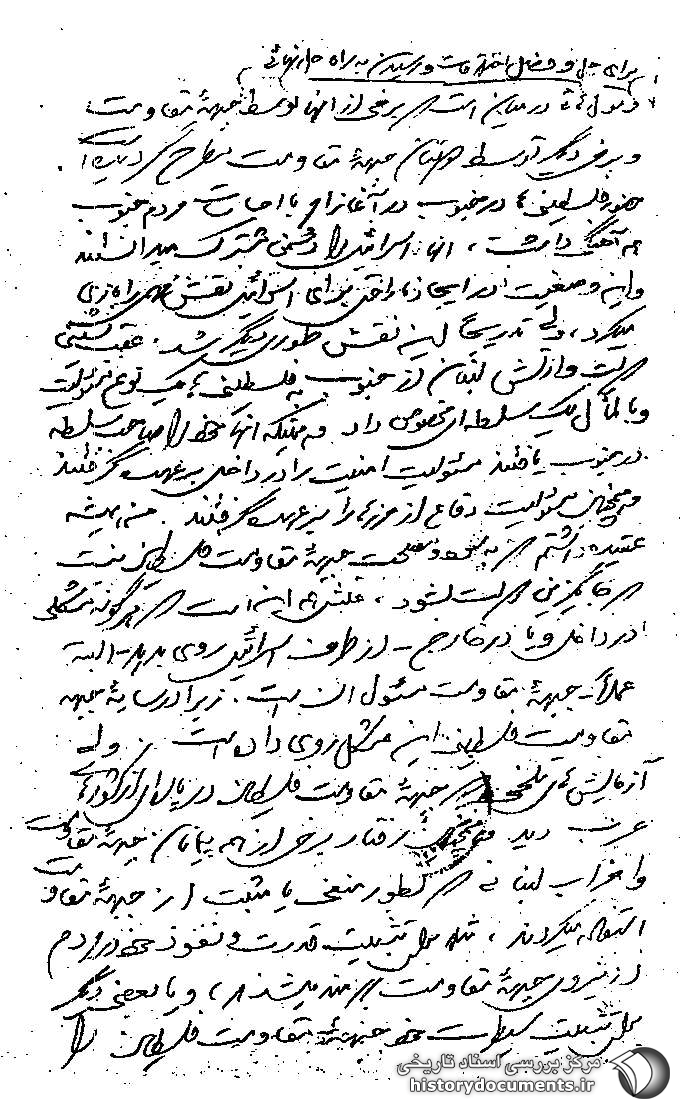 برای حل و فصل اختلافات و رسیدن به راه حل نهائی
در میان است که برخی از آنها توسط جبههٔ مقاومت
و برخی دیگر توسط جبههٔ مقاومت مطرح گردیده است.
حضور فلسطینی‌ها در جنوب در آغاز با احساسات مردم جنوب
هم آهنگ داشت، آنها اسرائیل را دشمنی مشترک میدانستند
و این وضعیت در ایجاد ناراحتی برای اسرائیل نقش مهمی را بازی
میکرد، ولی تدریجاً این نقش طوری دیگر شد. عقب نشینی
دولت و ارتش لبنان از جنوب به فلسطینی‌ها یک نوع مسئولیت
و بالمآل یک سلطه‌ای مخصوص داد همینکه آنها خود را صاحب سلطه
در جنوب یافتند مسئولیت امنیت را در داخل بر عهده گرفتند
همچنان مسئولیت دفاع از مرزها را بر عهده گرفتند. من همیشه
عقیده داشتم که به مصلحت جبههٔ مقاومت فلسطین نیست
که جایگزین دولت شود، علتش هم این است که هرگونه مشکلی
در داخل و یا در خارج - از طرف اسرائیل روی بدهد - البته
عملاً - جبههٔ مقاومت مسئول آن است. زیرا در سایهٔ جبهه
مقاومت فلسطین این مشکل روی داده است. ولی
آزمایش‌های تلخی که جبههٔ مقاومت فلسطین در پاره‌ای از کشورهای
عرب دید رفتار برخی از هم پیمانان جبههٔ مقاومت
و احزاب لبنانی که بطور منفی یا مثبت از جبههٔ مقاومت
استفاده میکردند، مثلا برای تثبیت قدرت و نفوذ خود در مردم
از نیروی جبههٔ مقاومت بهره‌مند میشدند، و یا بعضی دیگر
برای تثبیت خود جبههٔ مقاومت فلسطین را
مرکز بررسی اسناد تاریخی
historydocuments.ir